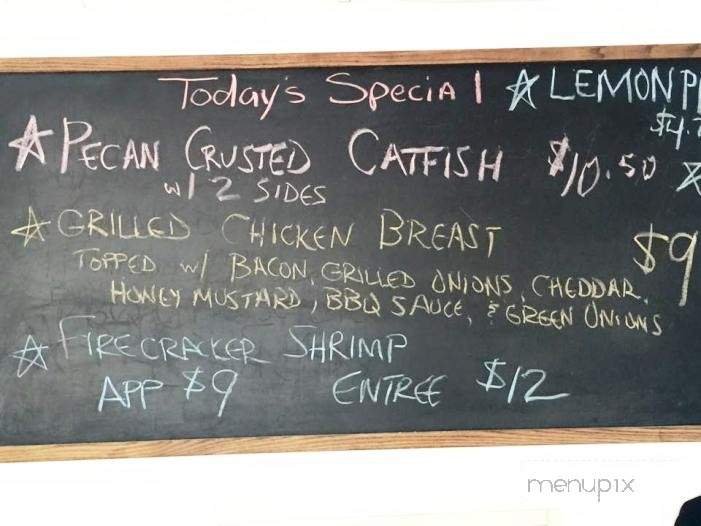 Today's Special
LEMON
PECAN CRUSTED CATFISH $10.50
w/ 2 SIDES
GRILLED CHICKEN BREAST $9
TOPPED w/ BACON, GRILLED ONIONS, CHEDDAR,
HONEY MUSTARD, BBQ SAUCE, & GREEN ONIONS
FIRECRACKER SHRIMP
APP $9 ENTREE $12
menupix